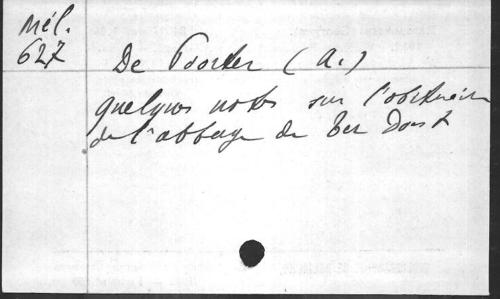 Mél.
627
De Poorter (A.)
quelques notes sur l'obituaire
de l'abbaye de Ter Doest